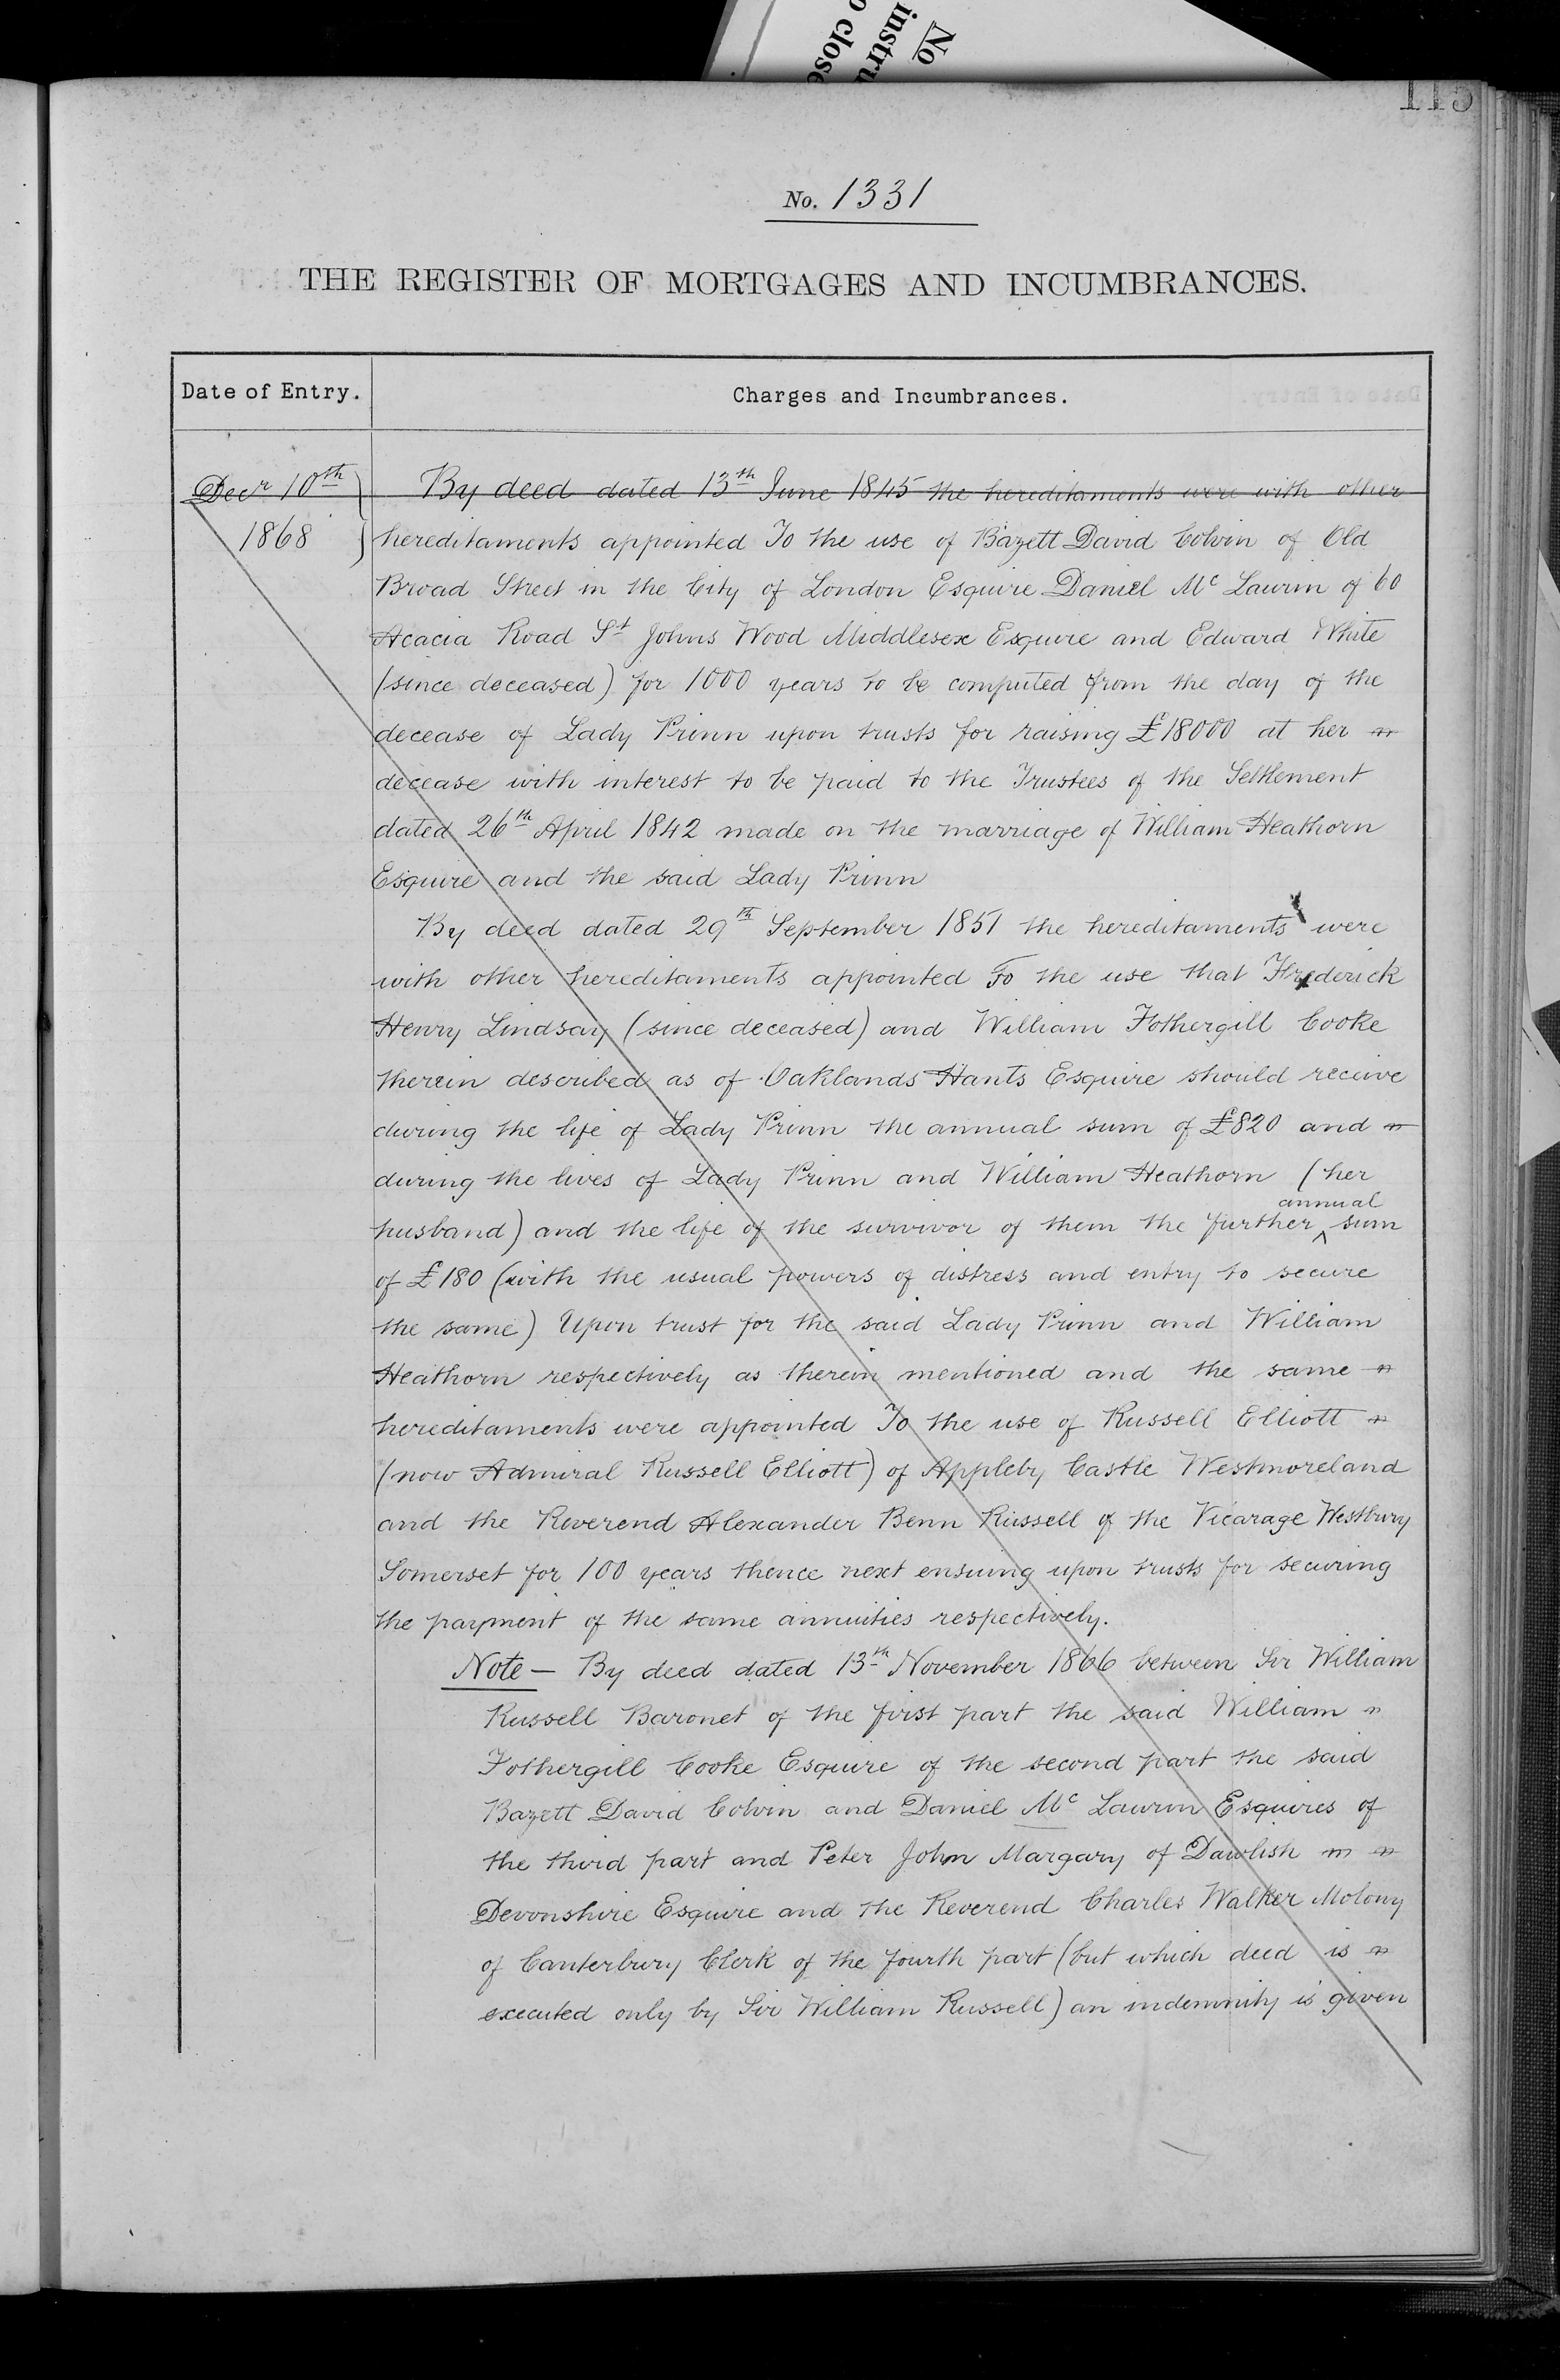 No
instru
o close
115
No. 1331
THE REGISTER OF MORTGAGES AND INCUMBRANCES.
Date of Entry.
Charges and Incumbrances.
Decr 10th
1868
By deed dated 13th June 1845 the hereditaments were with other
hereditaments appointed To the use of Bazett David Colvin of Old
Broad Street in the City of London Esquire Daniel Mc Laurin of 60
Acacia Road St Johns Wood Middlesex Esquire and Edward White
(since deceased) for 1000 years to be computed from the day of the
decease of Lady Prinn upon trusts for raising £18000 at her
decease with interest to be paid to the Trustees of the Settlement
dated 26th April 1842 made on the marriage of William Heathorn
Esquire and the said Lady Prinn
By deed dated 29th September 1851 the hereditaments were
with other hereditaments appointed To the use that Frederick
Henry Lindsay (since deceased) and William Fothergill Cooke
therein described as of Oaklands Hants Esquire should receive
during the life of Lady Prinn the annual sum of £820 and
during the lives of Lady Prinn and William Heathorn (her
husband) and the life of the survivor of them the further annual sum
of £180 (with the usual powers of distress and entry to secure
the same) Upon trust for the said Lady Prinn and William
Heathorn respectively as therein mentioned and the same
hereditaments were appointed To the use of Russell Elliott
(now Admiral Russell Elliott) of Appleby Castle Westmoreland
and the Reverend Alexander Benn Russell of the Vicarage Westbury
Somerset for 100 years thence next ensuing upon trusts for securing
the payment of the same annuities respectively.
Note — By deed dated 13th November 1866 between Sir William
Russell Baronet of the first part the said William
Fothergill Cooke Esquire of the second part the said
Bazett David Colvin and Daniel Mc Laurin Esquires of
the third part and Peter John Margary of Dawlish
Devonshire Esquire and the Reverend Charles Walker Molony
of Canterbury Clerk of the fourth part (but which deed is
executed only by Sir William Russell) an indemnity is given